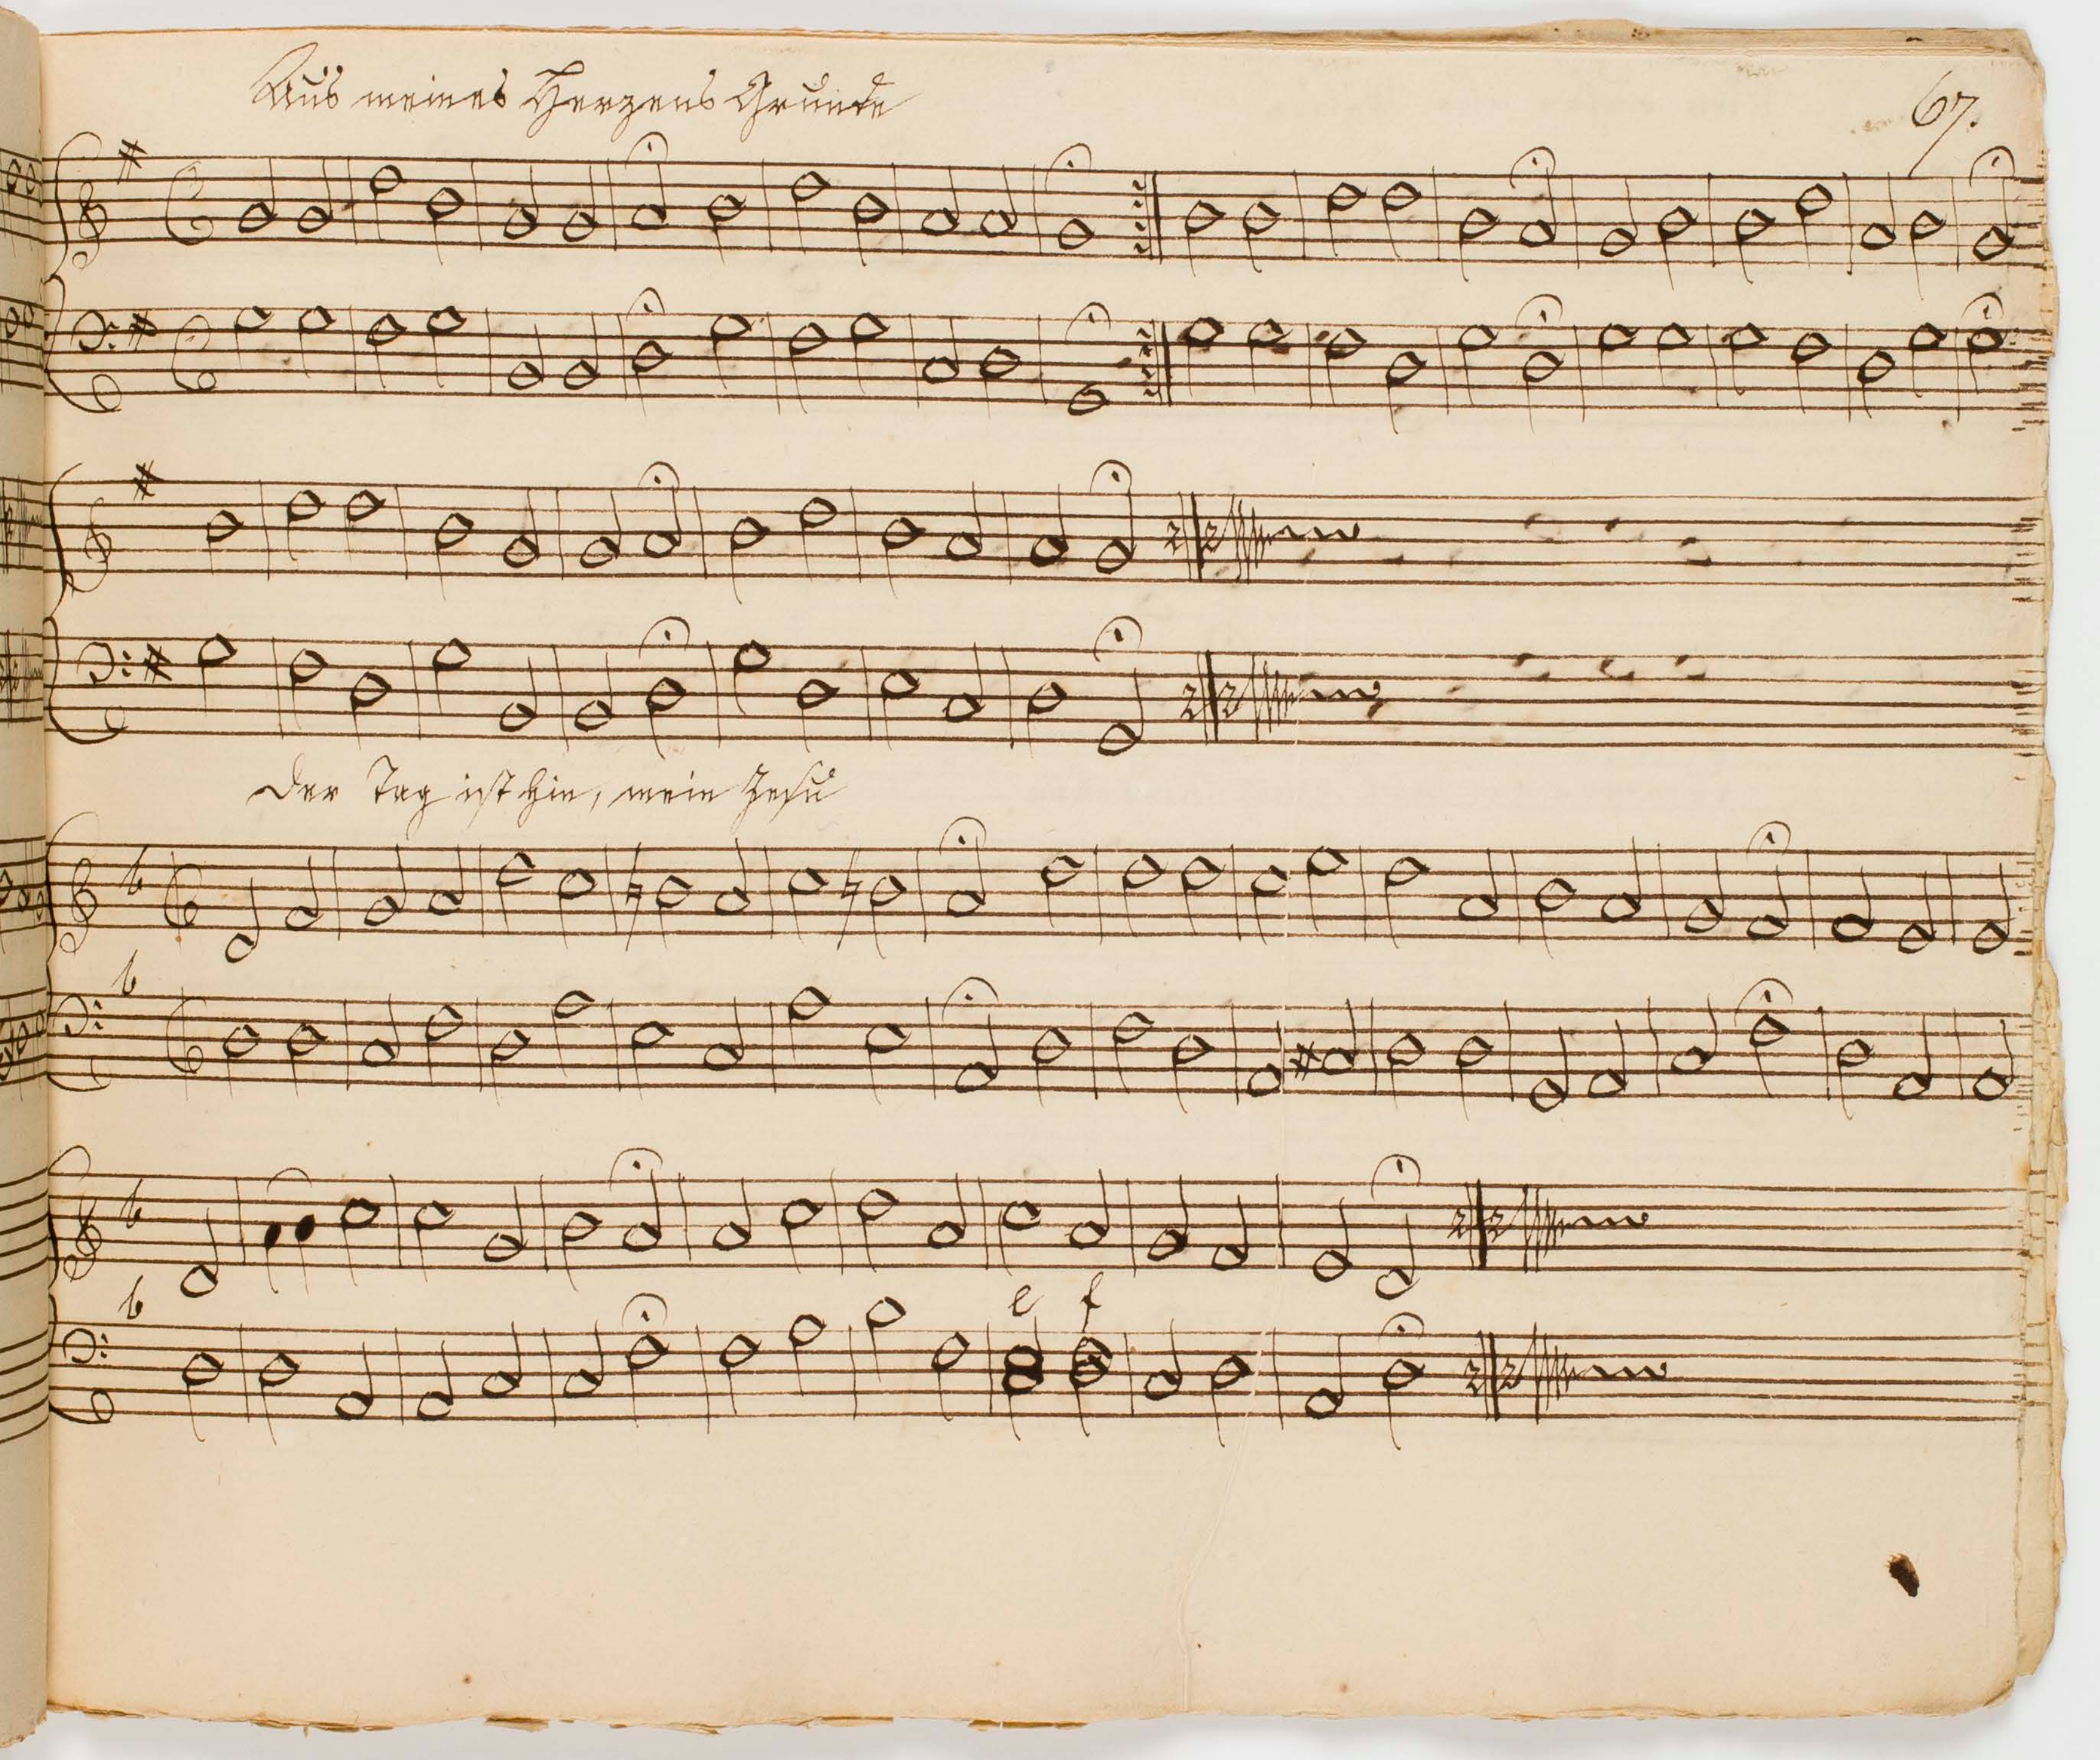 Aus meines Herzens Grunde
67.
Der Tag ist hin, mein Jesu
e f